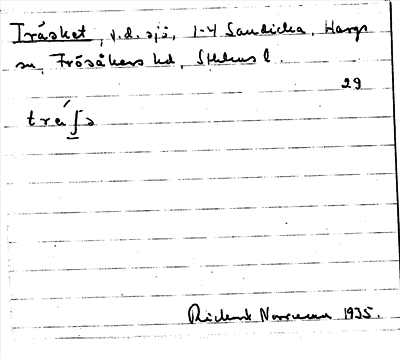 Träsket, f.d. sjö, 1-4 Sandicka, Hargs
sn, Frösåkers hd, Sthlms l.
29
Rickard Norrman 1935.